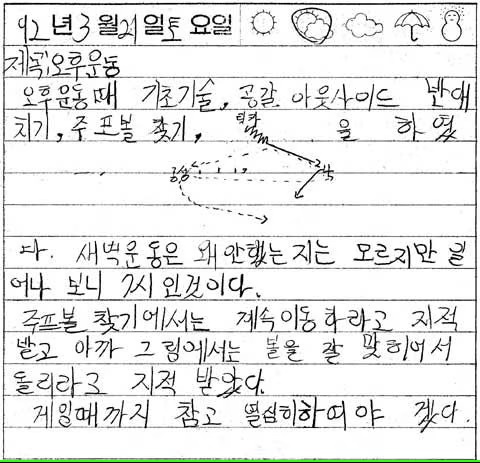 92년 3월 21일 토요일
제목:오후운동
오후운동때 기초기술, 공갈 아웃사이드 반대
치기, 주프볼 찾기, 을 하였
다. 새벽운동은 왜 안했는지는 모르지만 일
어나 보니 7시 인것이다.
주프볼 찾기에서는 계속이동하라고 지적
받고 아까 그림에서는 볼을 잘 맞히어서
돌리라고 지적 받았다.
게임때까지 참고 열심히하여야 겠다.